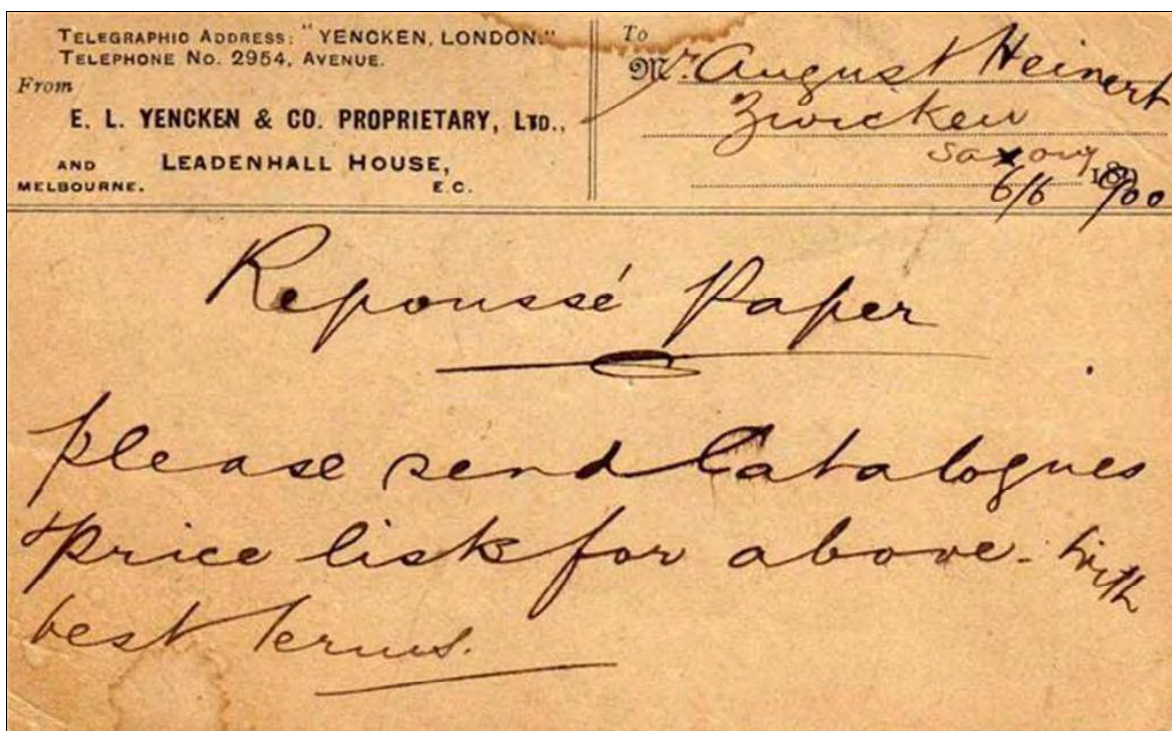 TELEGRAPHIC ADDRESS: "YENCKEN, LONDON."
TELEPHONE No. 2954, AVENUE.
From
E. L. YENCKEN & CO. PROPRIETARY, LTD.,
AND LEADENHALL HOUSE,
MELBOURNE. E.C.
To
Mr. August Heinert
Zwickau
Saxony
6/6 1900
Repoussé Paper
please send Catalogues
& Price list for above - with
best terms.